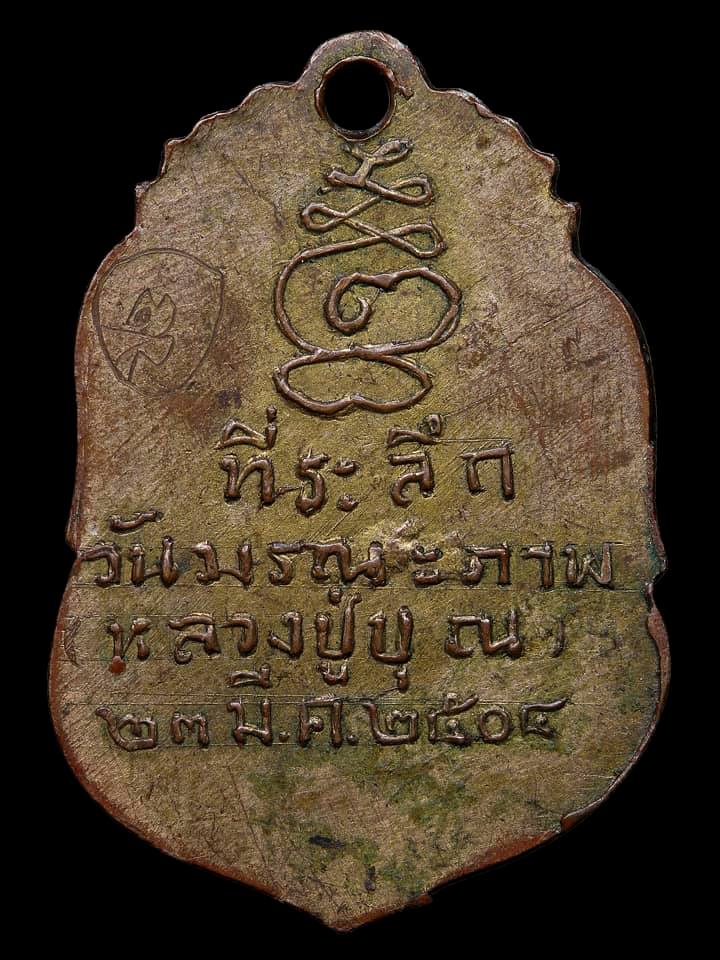 ที่ระลึก
วันมรณะภาพ
(หลวงปู่บุ ณ)
๒๓ มี.ค.๒๕๐๔